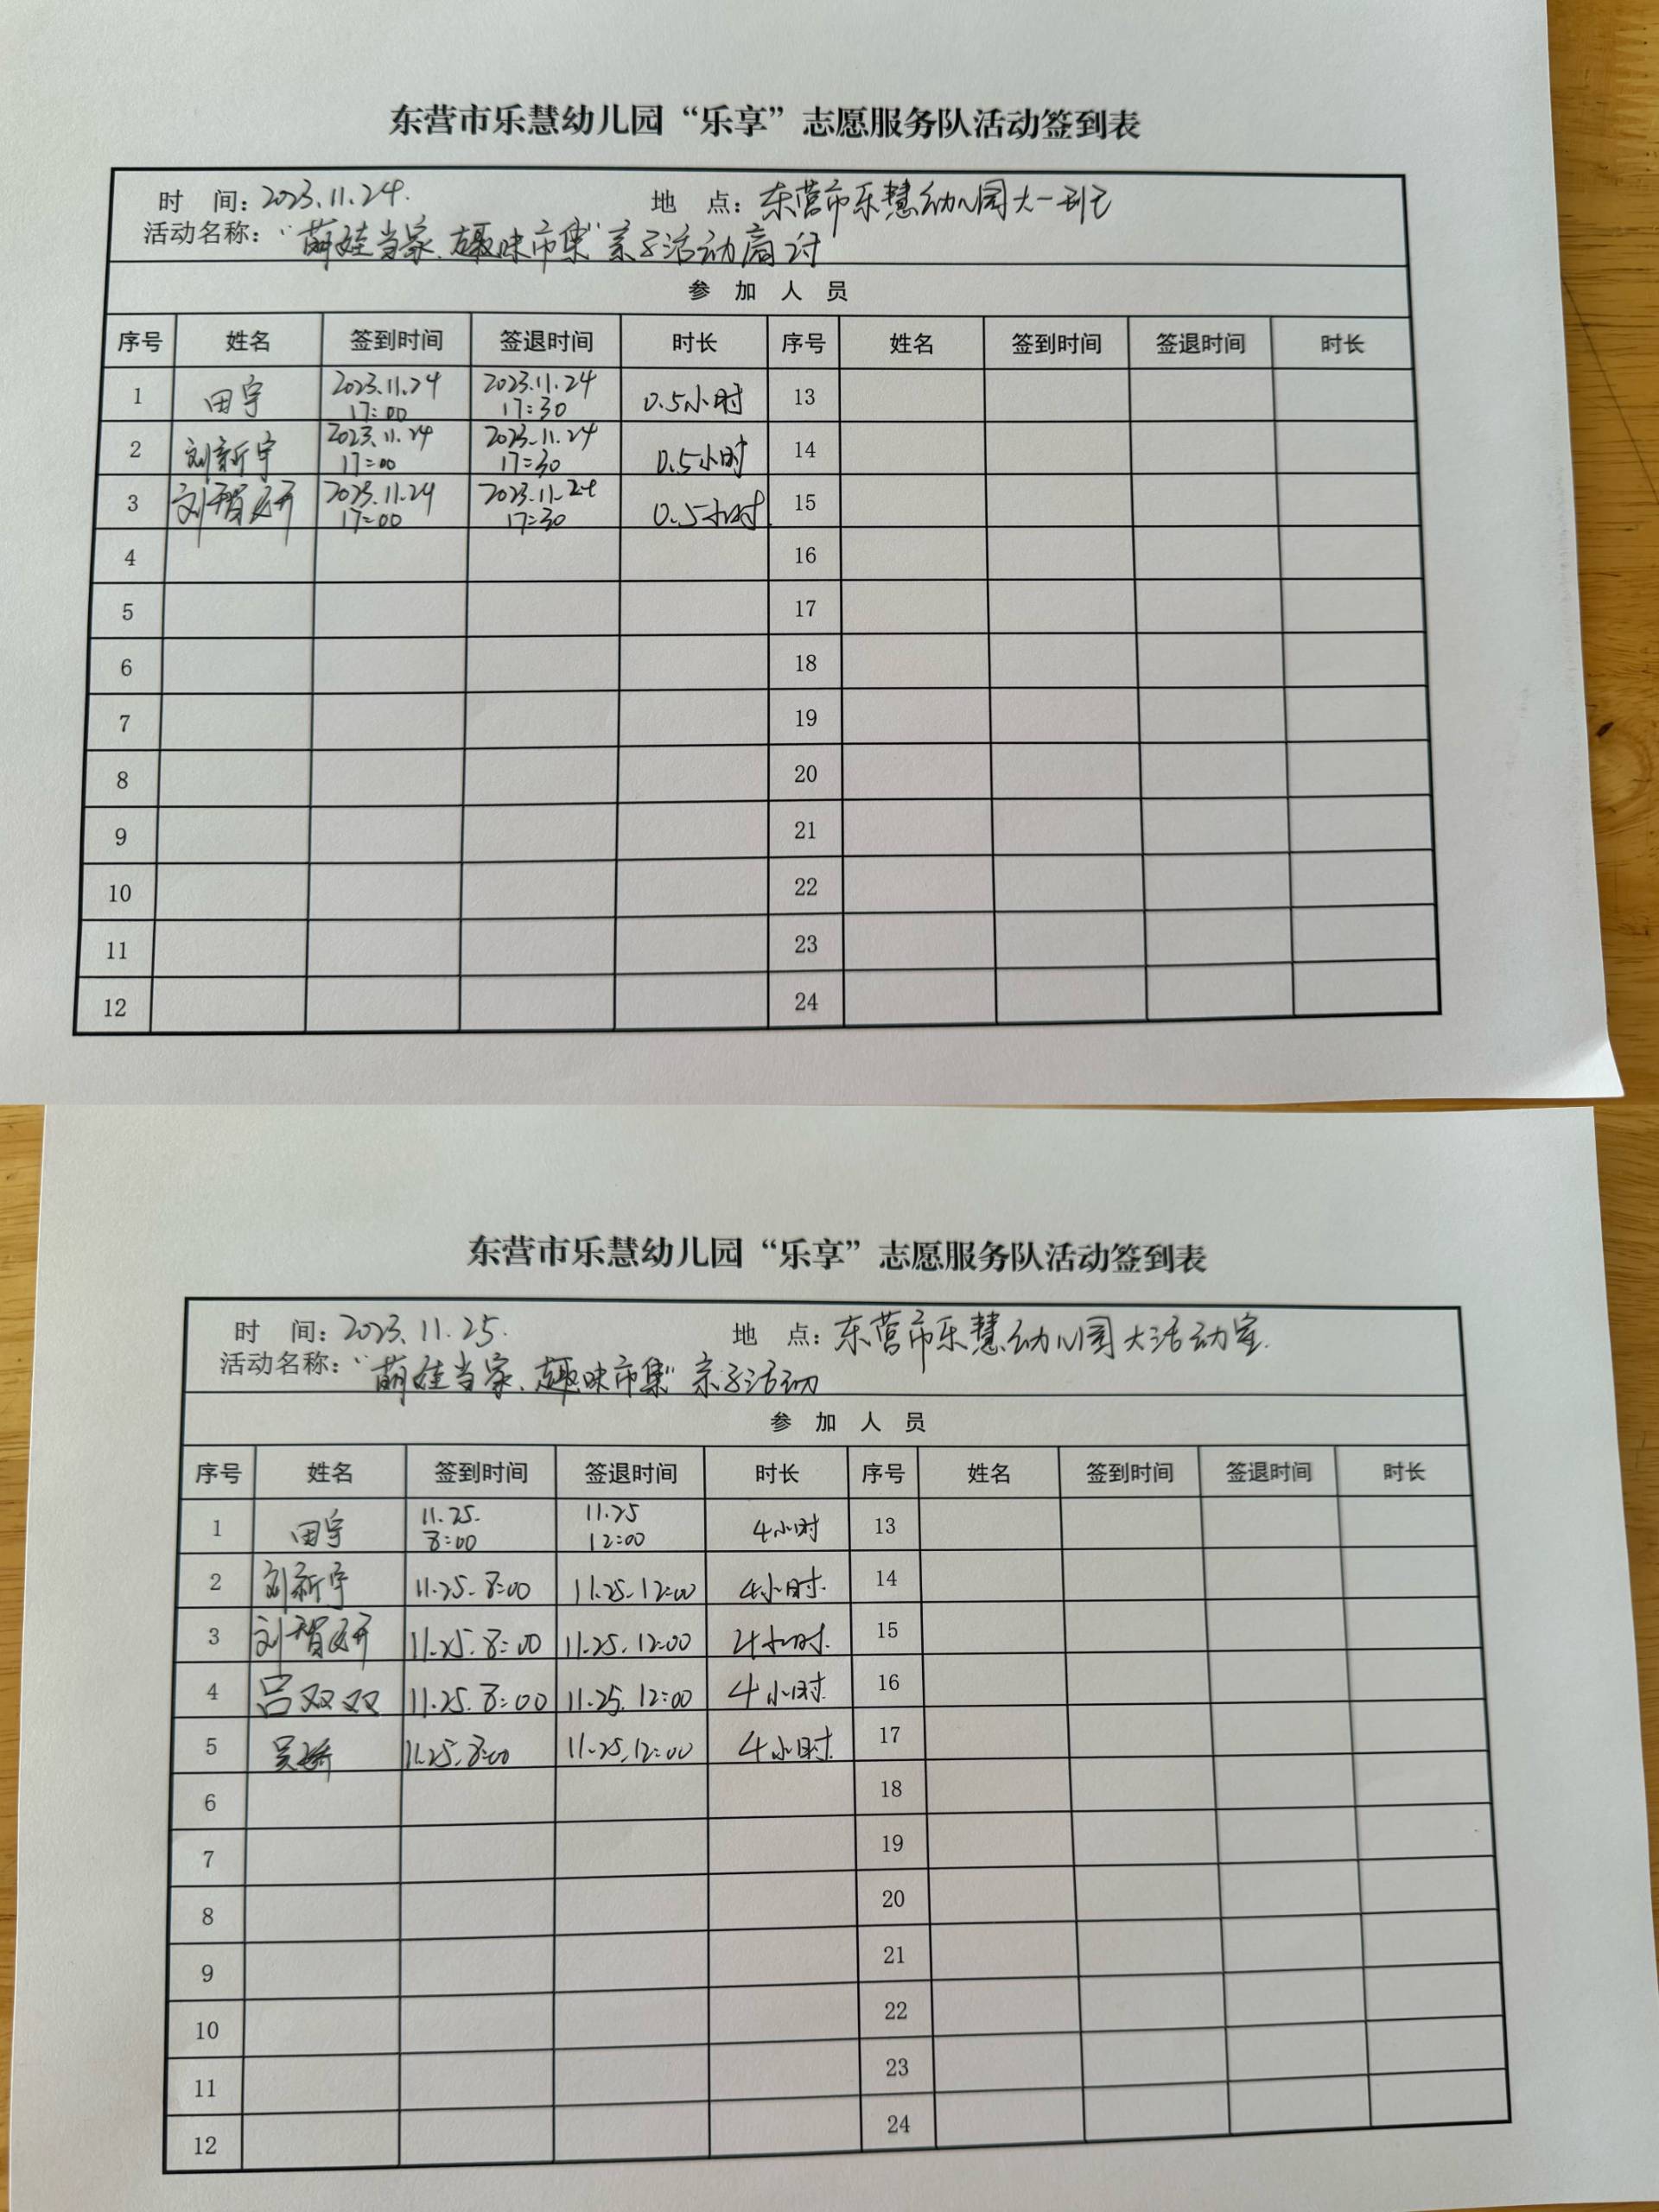 东营市乐慧幼儿园“乐享”志愿服务队活动签到表
时 间：2023.11.24. 地 点：东营市乐慧幼儿园大一班
活动名称：“萌娃当家、趣味市集”亲子活动商讨
参 加 人 员
序号 姓名 签到时间 签退时间 时长 序号 姓名 签到时间 签退时间 时长
1 田宇 2023.11.24 17:00 2023.11.24 17:30 0.5小时 13
2 刘新宇 2023.11.24 17:00 2023.11.24 17:30 0.5小时 14
3 刘智妍 2023.11.24 17:00 2023.11.24 17:30 0.5小时 15
4 16
5 17
6 18
7 19
8 20
9 21
10 22
11 23
12 24
东营市乐慧幼儿园“乐享”志愿服务队活动签到表
时 间：2023.11.25. 地 点：东营市乐慧幼儿园大活动室.
活动名称：“萌娃当家、趣味市集”亲子活动
参 加 人 员
序号 姓名 签到时间 签退时间 时长 序号 姓名 签到时间 签退时间 时长
1 田宇 11.25. 8:00 11.25 12:00 4小时 13
2 刘新宇 11.25.8:00 11.25.12:00 4小时. 14
3 刘智妍 11.25.8:00 11.25.12:00 4小时. 15
4 吕双双 11.25.8:00 11.25.12:00 4小时. 16
5 吴 11.25.8:00 11.25.12:00 4小时. 17
6 18
7 19
8 20
9 21
10 22
11 23
12 24